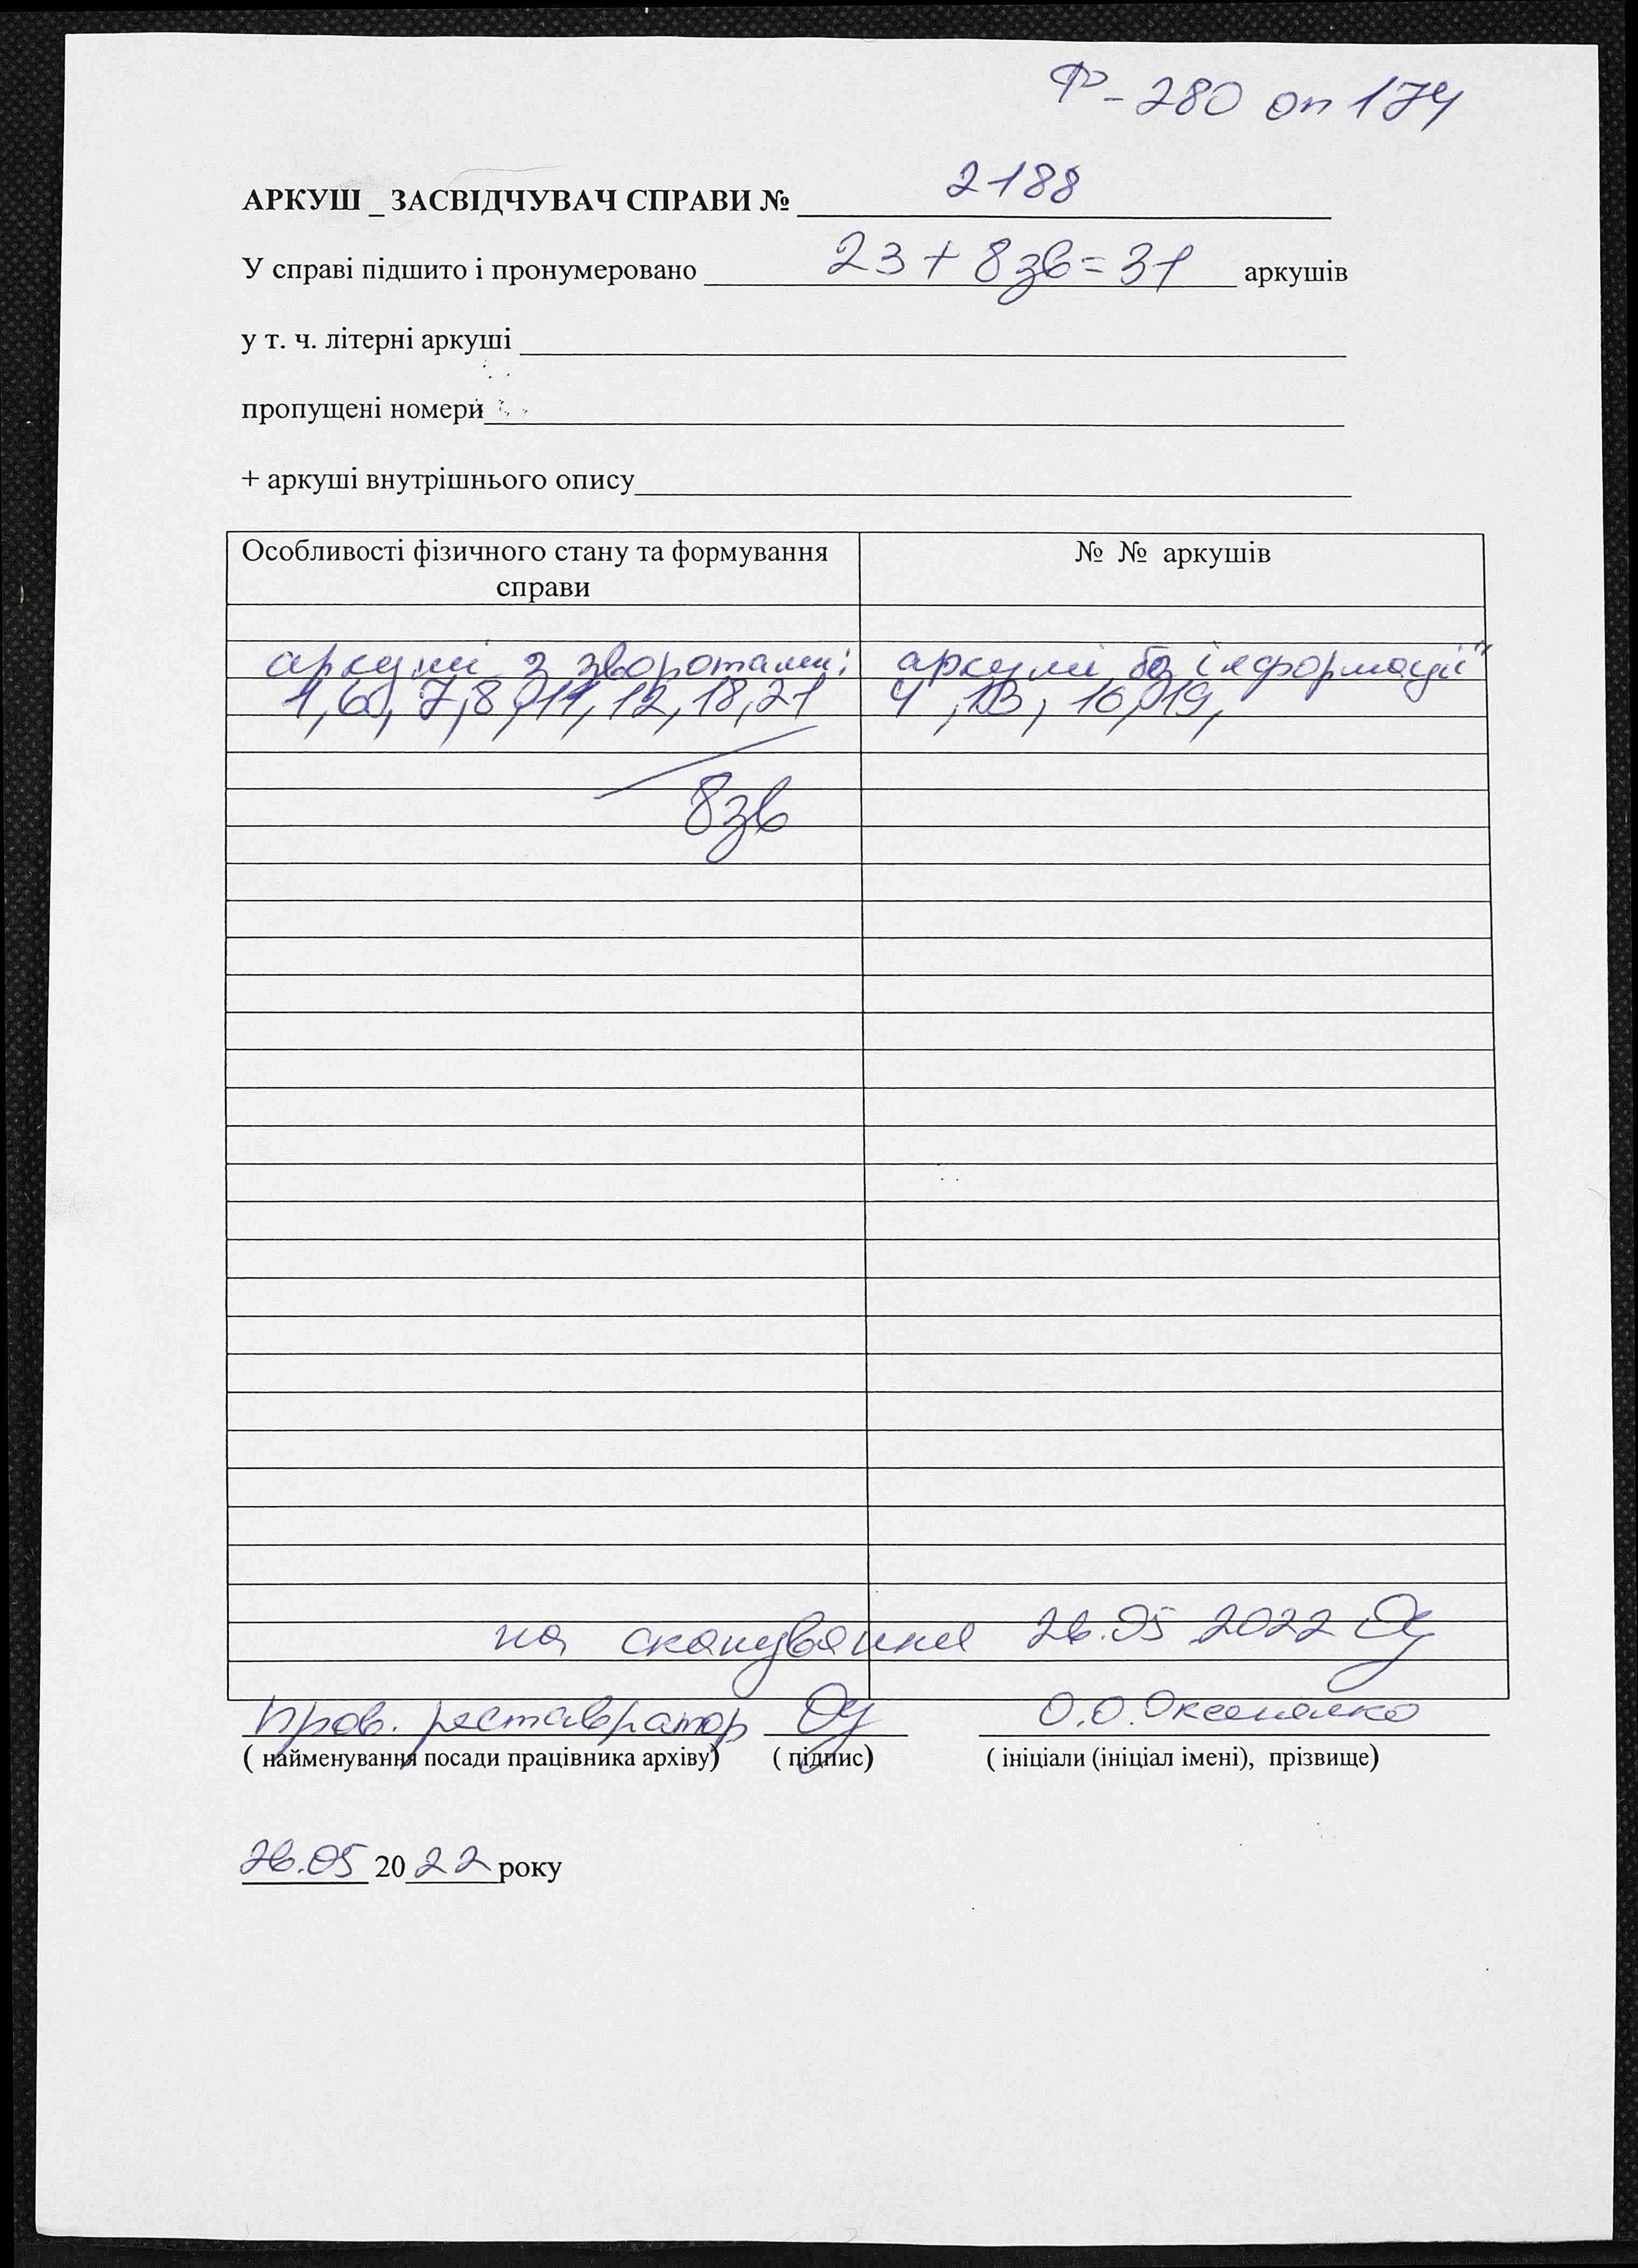 Ф-280 оп 174
АРКУШ _ ЗАСВІДЧУВАЧ СПРАВИ № 2188
У справі підшито і пронумеровано 23 + 8зв = 31 аркушів
у т. ч. літерні аркуші
пропущені номери
+ аркуші внутрішнього опису
Особливості фізичного стану та формування справи
№ № аркушів
аркуші з зворотами:
1, 6, 7, 8, 11, 12, 18, 21
8зв
аркуші без інформації
4, 13, 16, 19,
на сканування 26.05 2022
пров. реставратор О.О.
( найменування посади працівника архіву) ( підпис) ( ініціали (ініціал імені), прізвище)
26.05 2022 року